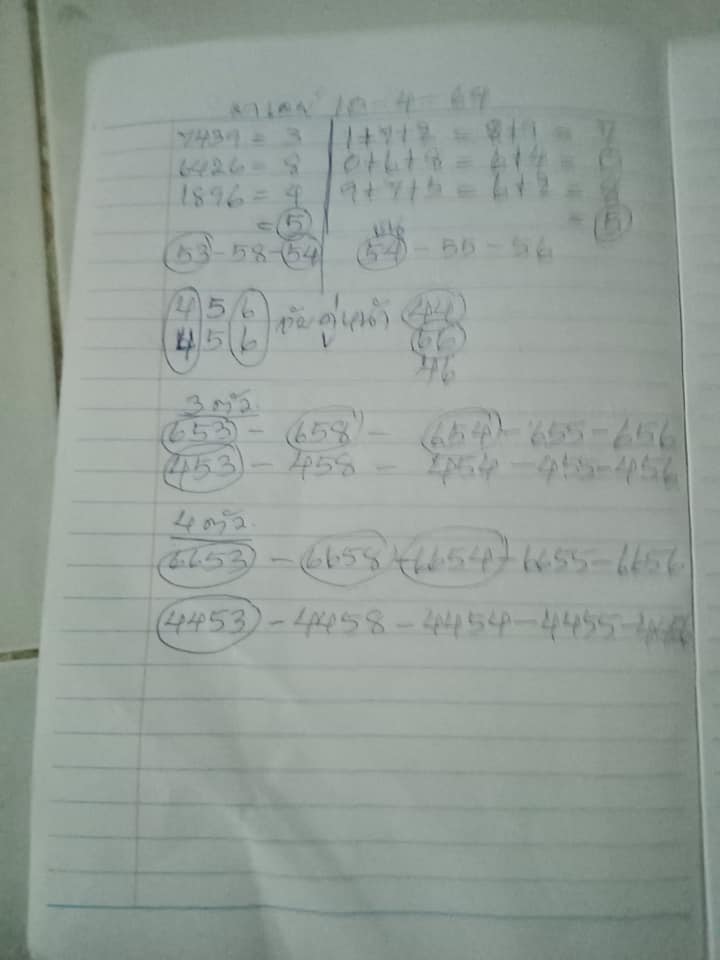 ลาเลย์ 10-4-69
7439 = 3 1+7+7 = 8+9 = 7
6426 = 8 0+6+8 = 6+4 = 0
1896 = 4 9+7+5 = 6+2 = 8
= 5 = 5
53 - 58 - 54 54 - 55 - 56
4 5 6 44
4 5 6 66
46
3 ตัว
653 - 658 - 654 - 655 - 656
453 - 458 - 454 - 455 - 456
4 ตัว
6653 - 6658 - 6654 - 6655 - 6656
4453 - 4458 - 4454 - 4455 - 4456